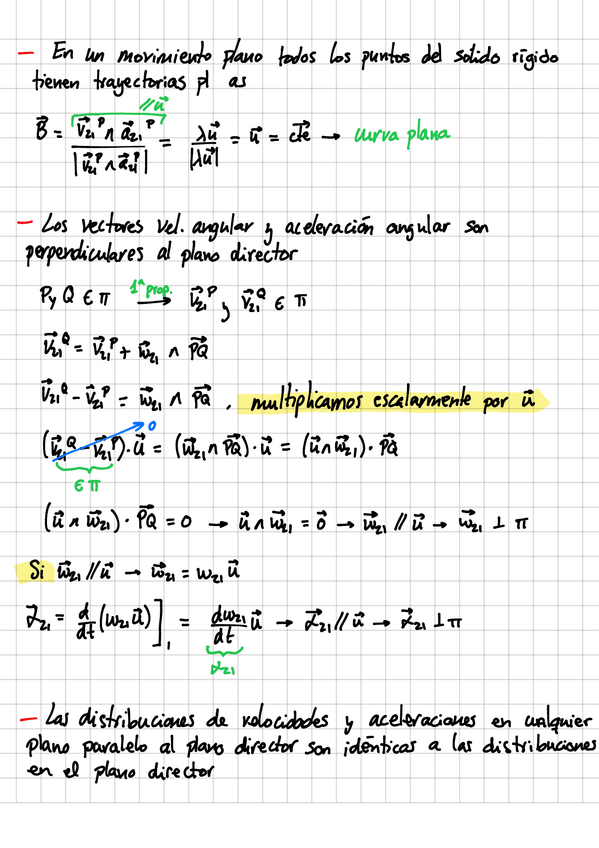 — En un movimiento plano todos los puntos del sólido rígido
tienen trayectorias pl as
//u⃗
B⃗ = (v⃗₂₁ᴾ ∧ a⃗₂₁ᴾ) / |v⃗₂₁ᴾ ∧ a⃗₂₁ᴾ| = λu⃗ / |λu⃗| = u⃗ = cte⃗ → curva plana
— Los vectores vel. angular y aceleración angular son
perpendiculares al plano director
P y Q ∈ π 1ª prop. → v⃗₂₁ᴾ y v⃗₂₁Q ∈ π
v⃗₂₁Q = v⃗₂₁ᴾ + w⃗₂₁ ∧ PQ⃗
v⃗₂₁Q - v⃗₂₁ᴾ = w⃗₂₁ ∧ PQ⃗ , multiplicamos escalarmente por u⃗
(v⃗₂₁Q - v⃗₂₁ᴾ)·u⃗ 0 = (w⃗₂₁ ∧ PQ⃗)·u⃗ = (u⃗ ∧ w⃗₂₁)·PQ⃗
∈ π
(u⃗ ∧ w⃗₂₁)·PQ⃗ = 0 → u⃗ ∧ w⃗₂₁ = 0⃗ → w⃗₂₁ // u⃗ → w⃗₂₁ ⊥ π
Si w⃗₂₁ // u⃗ → w⃗₂₁ = w₂₁ u⃗
α⃗₂₁ = d/dt (w₂₁ u⃗)]₁ = dw₂₁/dt u⃗ → α⃗₂₁ // u⃗ → α⃗₂₁ ⊥ π
α₂₁
— Las distribuciones de velocidades y aceleraciones en cualquier
plano paralelo al plano director son idénticas a las distribuciones
en el plano director